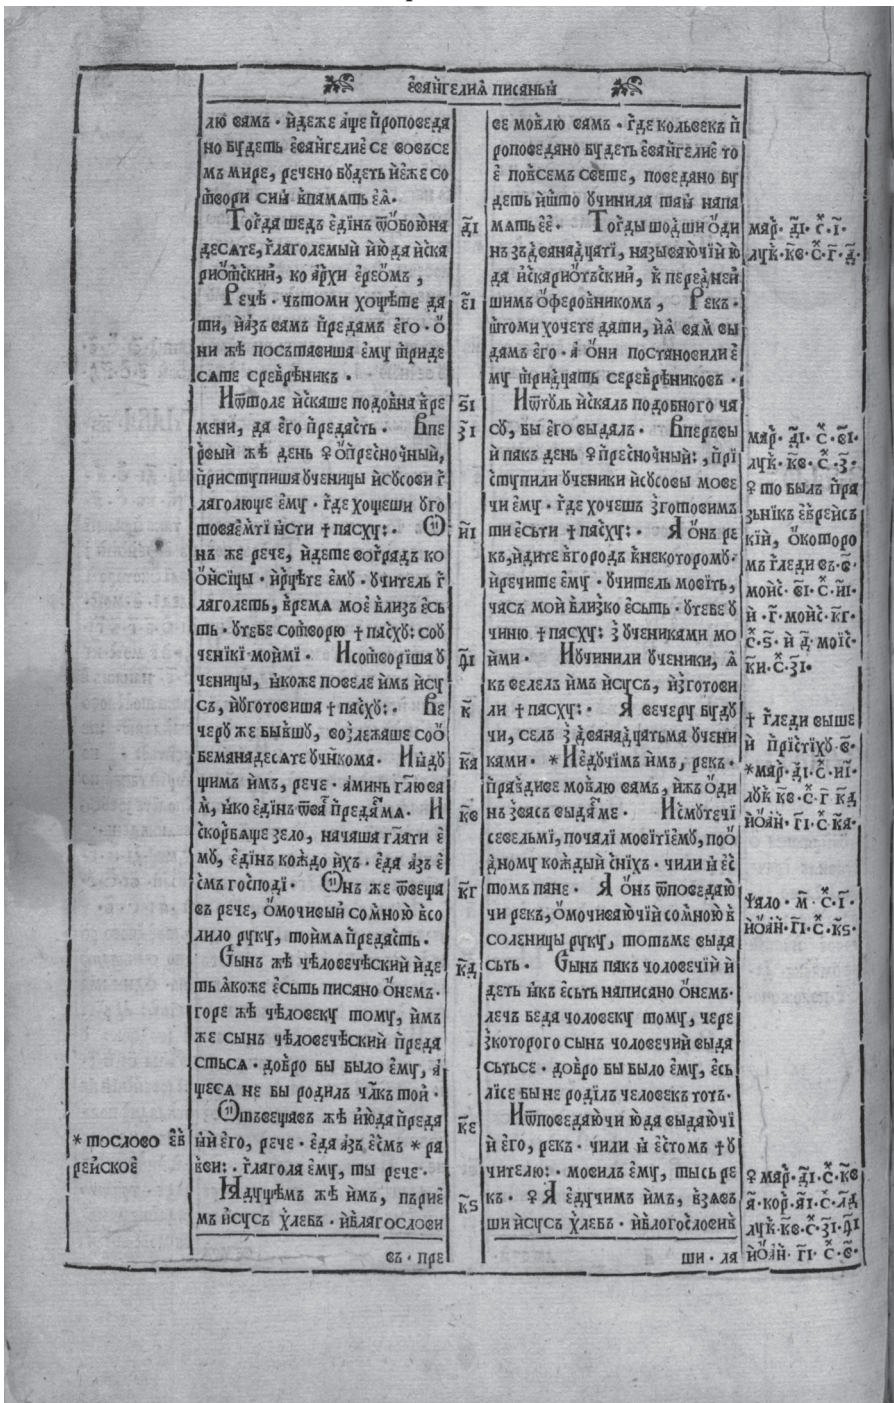 еѵан̾гелиꙗ писаный
лю вамъ · идеже аще проповеда
но будеть еѵан̾гелие се вовъсе
мъ мире, речено будеть иеже со
твори сиꙗ впамять еꙗ ·
Тогда шедъ единъ ѿобоюна
десѧте, глаголемый июда иска
риотский, ко архи ереомъ,
Рече · чътоми хощете да
ти, иазъ вамъ предамъ его · о
ни же посътавиша ему триде
сѧте сребръникъ ·
Иѿтоле искаше подобна вре
мени, да его предасть · Впе
рвый же день ♀ опресночный,
приступиша ученицы исусови г
лаголюще ему · где хощеши уго
товаемъти ꙗсти † пасху : · Ѻ
нъ же рече, идете воградъ ко
онсицы · ирцѣте ему · учитель г
лаголеть, время мое близъ есь
ть · утебе сотворю † пасху : соу
ченікі моимі · Исотворіша у
ченицы, ꙗкоже повеле имъ ису
съ, иуготовиша † пасху : · Ве
черу же бывшу, возлежаше соо
беманадесѧте учн̃кома · Иꙗду
щимъ имъ, рече · аминь глю̃ва
м̾, ꙗко единъ ѿва̾ предаⷭ҇мѧ · И
скорбѧще зело, начаша глати е
му, единъ кождо ихъ · еда азъ е
смъ господі · Ѻнъ же ѿвеща
въ рече, омочивый сомною всо
лило руку, тоймѧ предасть ·
Сынъ же чѣловеческий иде
ть ꙗкоже есьть писано онемъ ·
горе же чѣловеку тому, имъ
же сынъ чѣловечѣский преда
стьсѧ · добро бы было ему, а
щесѧ не бы родилъ члкъ той ·
Ѻтъвещавъ же июда преда
ꙗй его, рече · еда азъ есмъ * ра
вви : · глаголя ему, ты рече ·
Ꙗдущѣмъ же имъ, пърие
мъ исусъ хлебъ · иблагослови
въ · пре
* тослово ев
рейское
д҃і
е҃і
ѕ҃і
з҃і
и҃і
ѳ҃і
к҃
к҃а
к҃в
к҃г
к҃д
к҃е
к҃ѕ
ве мовлю вамъ · где кольвекъ п
роповедано будеть еѵан̾гелие то
е повсемъ свете, поведано бу
деть ишто учинила таꙗ напа
мять ее · Тогды шодши оди
нъ зъдванадцяті, называючій ю
да искариотъский, к переднеи
шимъ оферовникомъ, Рекъ ·
штоми хочете дати, иꙗ вам̾ вы
дамъ его · а они постановили е
му тридцать серебрѣниковъ ·
Иѿтуль искалъ подобного ча
су, бы его выдалъ · Впервы
й пакъ день ♀ пресночный :, прі
ступили ученики исусовы мове
чи ему · где хочешь зготовимъ
ти есьти † пасху : · А онъ ре
къ, идите вгородъ кнекоторому ·
иречите ему · учитель мовіть,
часъ мой близко есьть · утебе у
чиню † пасху : з учениками мо
ими · Иучинили ученики, ꙗ
къ велелъ имъ исусъ, изготови
ли † пасху : · А вечеру буду
чи, селъ з дванадцатьма учени
ками · * Иедучімъ имъ, рекъ ·
праздиве мовлю вамъ, ижъ оди
нъ звасъ выдаⷭ҇ме · Исмутечі
севельмі, почалі мовітіему, поо
дному каждый сніхъ · чили ꙗ ес
томъ пане · А онъ ѿповедаю
чи рекъ, омочиваючій сомною в
соленицы руку, тотъме выда
сьть · Сынъ пакъ чоловечій и
деть ꙗкъ есьть написано онемъ ·
лечъ беда чоловеку тому, чере
зкоторого сынъ чоловечий выда
сьтьсе · добро бы было ему, есь
лісе быне роділъ человекъ тотъ ·
Иѿповедаючи юда выдаючі
й его, рекъ · чили ꙗ естомъ † у
чителю : · мовилъ ему, тысь ре
къ · ♀ А едучимъ имъ, взѧв
ши исусъ хлебъ · иблогословив
ши · ла
мар · д҃і · с · і҃ ·
лук · к҃в · с · г҃ · д҃ ·
мар · д҃і · с · в҃і ·
лук · к҃в · с · з҃ ·
♀ то былъ пра
зьнікъ еврейсъ
кій, окоторо
мъ гледи въ · в҃ ·
мойс · в҃і · с · и҃і ·
и · г҃ · мойс · к҃г ·
с · ѕ҃ · и д҃ · моіс ·
к҃и · с · з҃і ·
† гледи выше
и прістіху · в҃ ·
* мар · д҃і · с · и҃і ·
лук к҃в · с · г҃ к҃д
иоан · г҃і · с · к҃а ·
ѱало · м҃ · с · і҃ ·
иоан · г҃і · с · к҃ѕ ·
♀ мар · д҃і · с · к҃в
а҃ · кор · а҃і · с · л҃д
лук · к҃в · с · з҃і · ѳ҃і
иоан · г҃і · с · в҃ ·